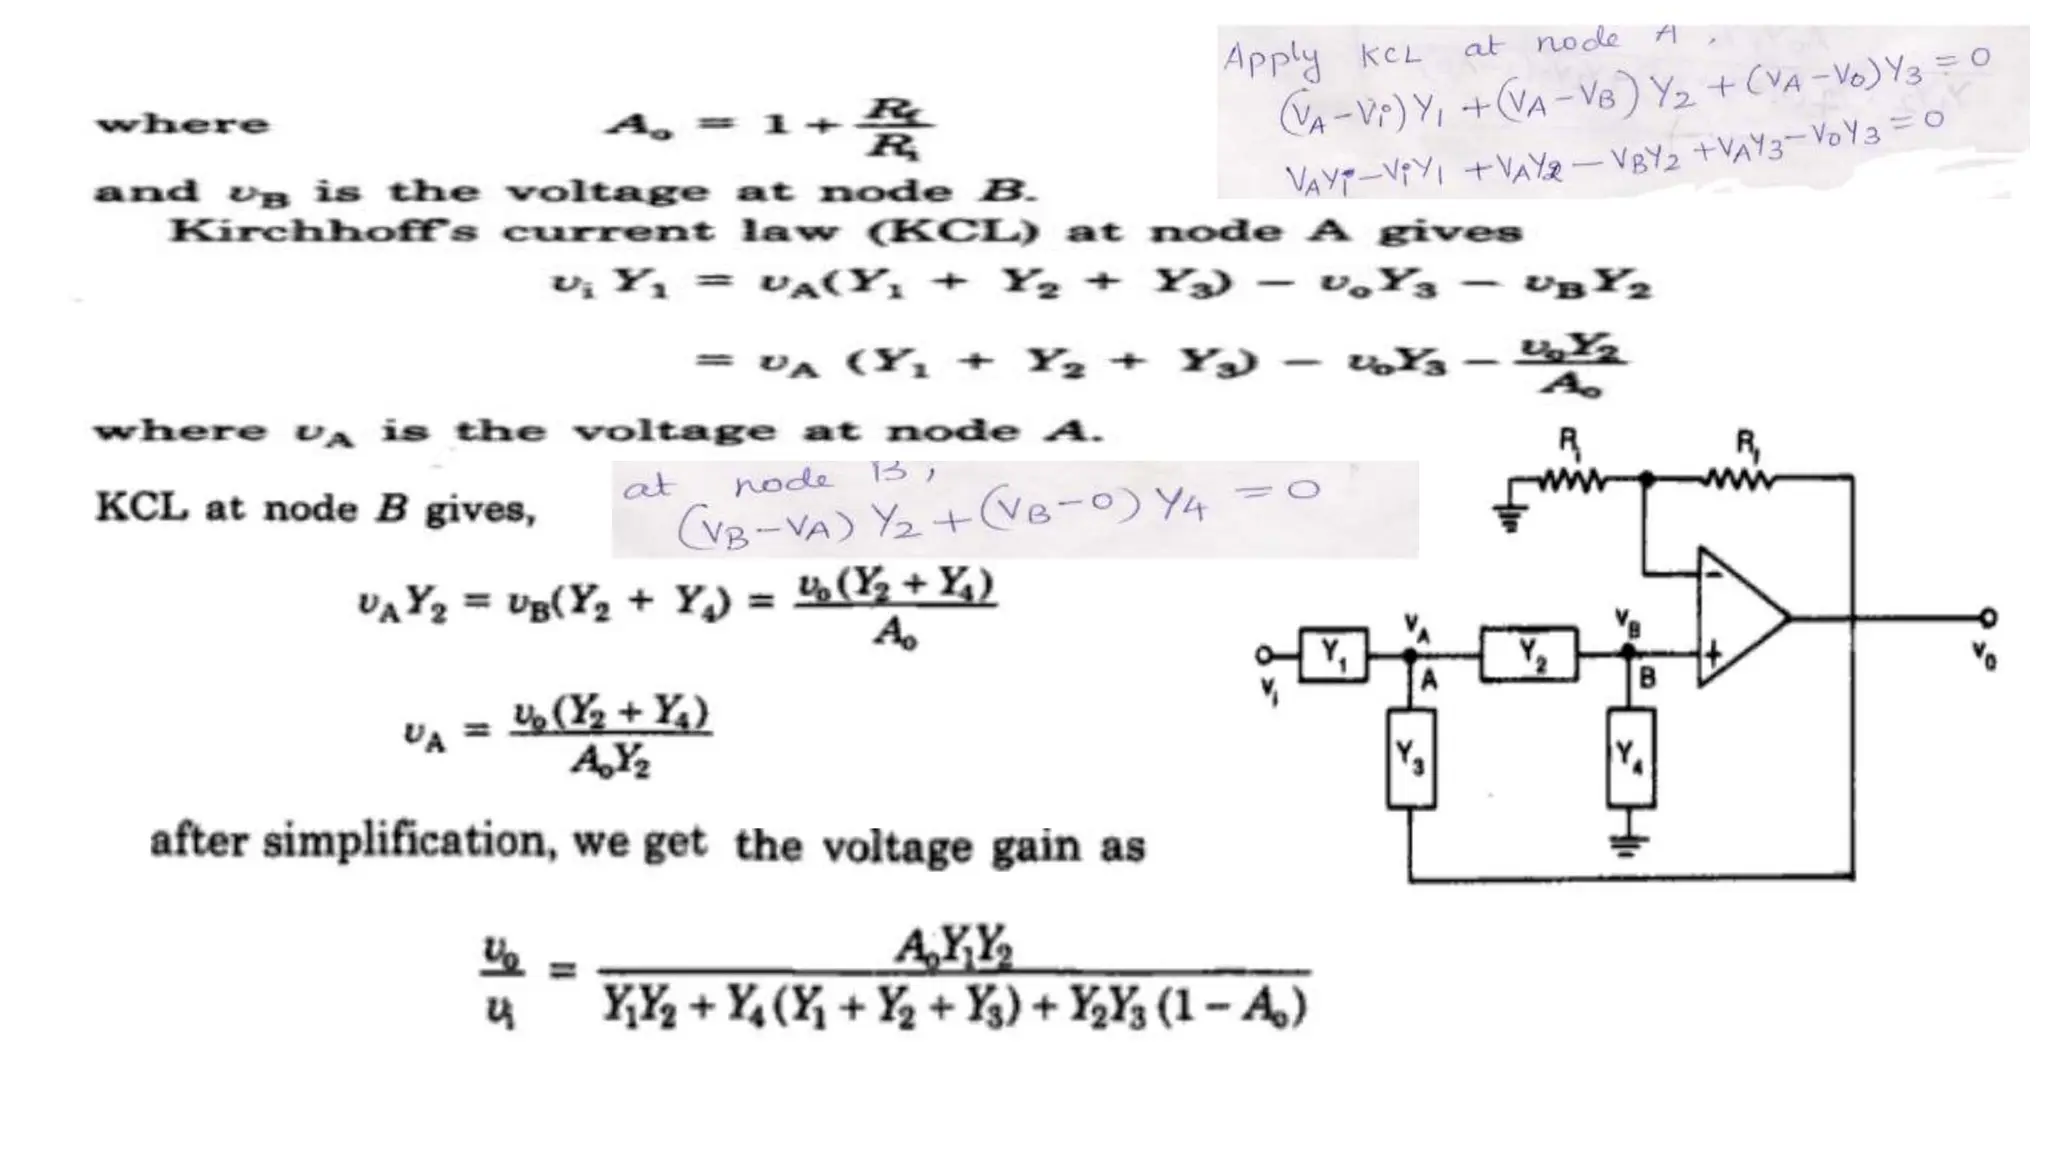 Apply KCL at node A,
(VA-Vi)Y1+(VA-VB)Y2+(VA-Vo)Y3=0
VAYi-ViY1+VAY2-VBY2+VAY3-VoY3=0
where Ao = 1 + Rf/Ri
and vB is the voltage at node B.
Kirchhoff's current law (KCL) at node A gives
vi Y1 = vA(Y1 + Y2 + Y3) - voY3 - vBY2
= vA (Y1 + Y2 + Y3) - voY3 - voY2/Ao
where vA is the voltage at node A.
KCL at node B gives,
at node B,
(VB-VA)Y2+(VB-0)Y4=0
vAY2 = vB(Y2 + Y4) = vo(Y2 + Y4)/Ao
vA = vo(Y2 + Y4)/AoY2
after simplification, we get the voltage gain as
vo/vi = AoY1Y2/Y1Y2 + Y4(Y1 + Y2 + Y3) + Y2Y3(1 - Ao)
Ri
Rf
-
+
VA
VB
Vi
Y1
A
Y2
B
Vo
Y3
Y4